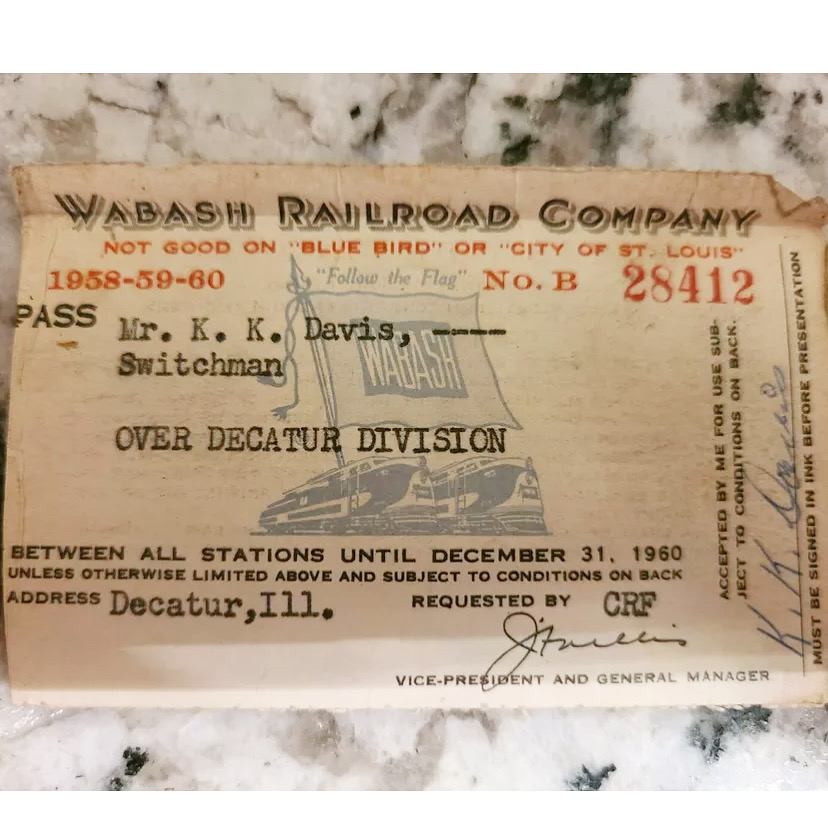 WABASH RAILROAD COMPANY
NOT GOOD ON "BLUE BIRD" OR "CITY OF ST. LOUIS"
1958-59-60 "Follow the Flag" No. B 28412
PASS Mr. K. K. Davis, ----
Switchman
WABASH
OVER DECATUR DIVISION
BETWEEN ALL STATIONS UNTIL DECEMBER 31, 1960
UNLESS OTHERWISE LIMITED ABOVE AND SUBJECT TO CONDITIONS ON BACK
ADDRESS Decatur,Ill. REQUESTED BY CRF
VICE-PRESIDENT AND GENERAL MANAGER
ACCEPTED BY ME FOR USE SUB-
JECT TO CONDITIONS ON BACK.
K. K. Davis
MUST BE SIGNED IN INK BEFORE PRESENTATION